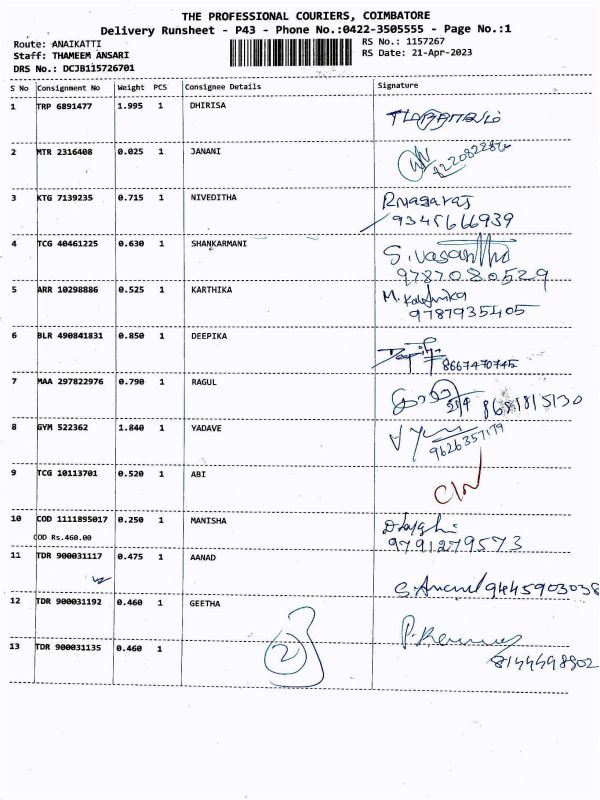 THE PROFESSIONAL COURIERS, COIMBATORE
Delivery Runsheet - P43 - Phone No.:0422-3505555 - Page No.:1
Route: ANAIKATTI RS No.: 1157267
Staff: THAMEEM ANSARI RS Date: 21-Apr-2023
DRS No.: DCJB115726701
S No Consignment No Weight PCS Consignee Details Signature
1 TRP 6891477 1.995 1 DHIRISA
2 MTR 2316408 0.025 1 JANANI
3 KTG 7139235 0.715 1 NIVEDITHA R.Nagaraj
9345666939
4 TCG 40461225 0.630 1 SHANKARMANI S.Vasantha
9787080529
5 ARR 10298886 0.525 1 KARTHIKA M.
9787935405
6 BLR 490841831 0.850 1 DEEPIKA
8667470745
7 MAA 297822976 0.790 1 RAGUL
8681815130
8 GYM 522362 1.840 1 YADAVE
9626357179
9 TCG 10113701 0.520 1 ABI
10 COD 1111895017 0.250 1 MANISHA
COD Rs.460.00 9791279573
11 TDR 900031117 0.475 1 AANAD
S.Anand 9445903038
12 TDR 900031192 0.460 1 GEETHA
2
13 TDR 900031135 0.460 1
8144498802